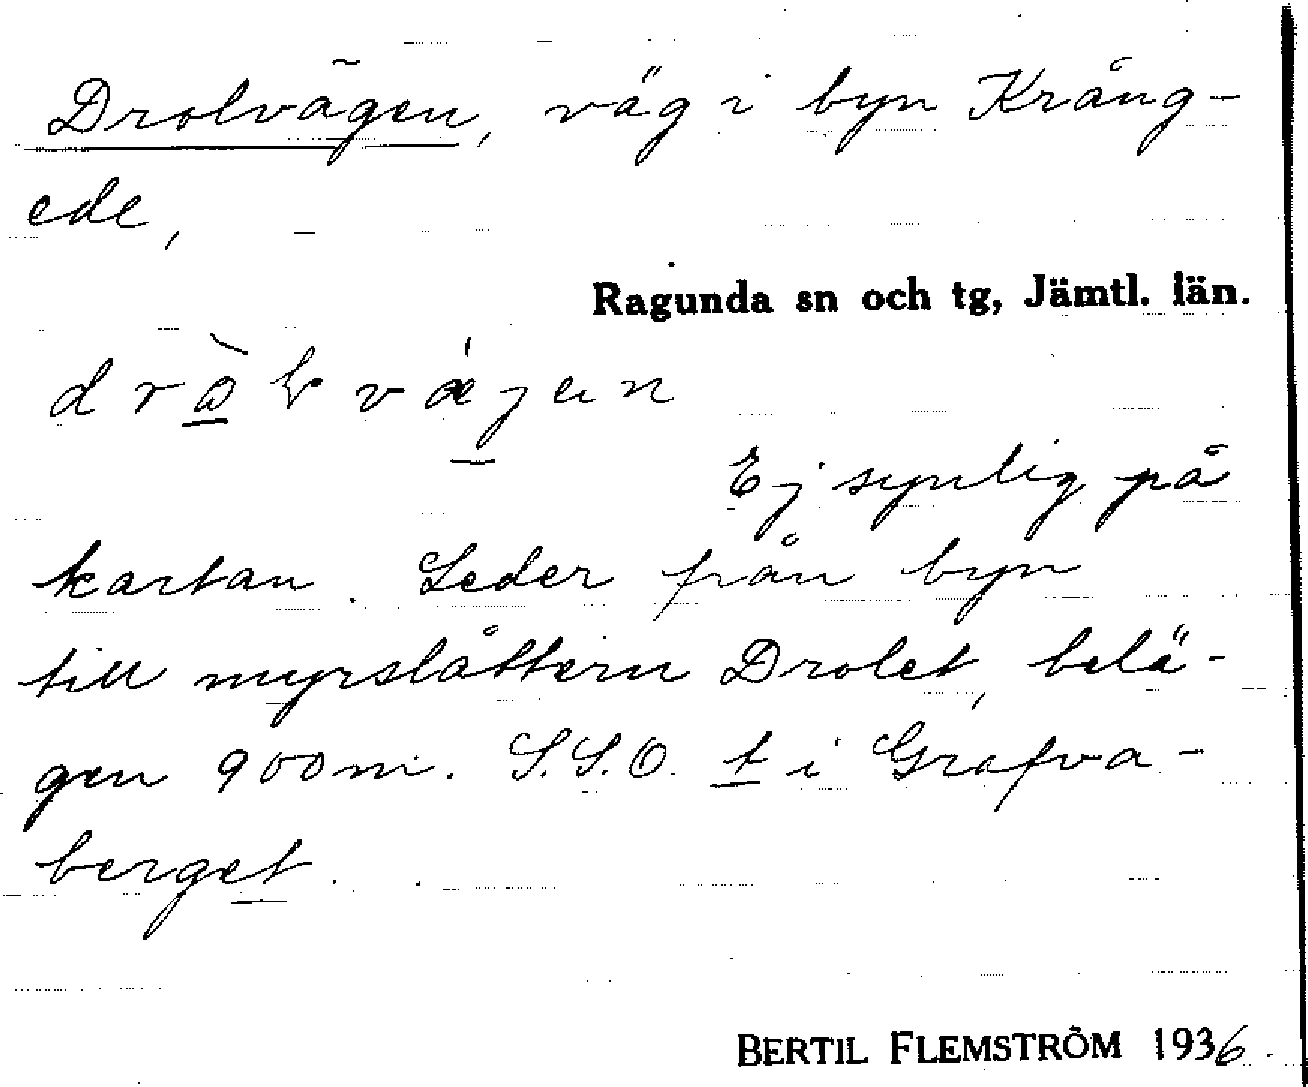 Drolvägen, väg i byn Krång-
ede,
Ragunda sn och tg, Jämtl. län.
Ej synlig på
kartan. Leder från byn
till myrslåttern Drolet, belä-
gen 900 m. S.S.O. t i Grafva-
berget.
BERTIL FLEMSTRÖM 1936.